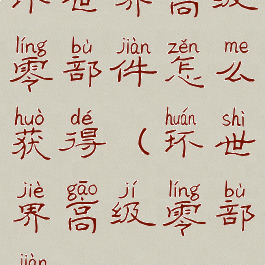 líng bù jiàn zěn me
零部件怎么
huò dé huán shì
获得（环世
jiè gāo jí líng bù
界高级零部
jiàn